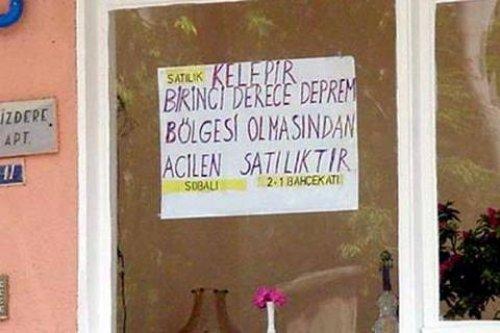 SATILIK KELEPİR
BİRİNCİ DERECE DEPREM
BÖLGESİ OLMASINDAN
ACİLEN SATILIKTIR
SOBALI 2+1 BAHÇEKATI
İZDERE
APT.
11